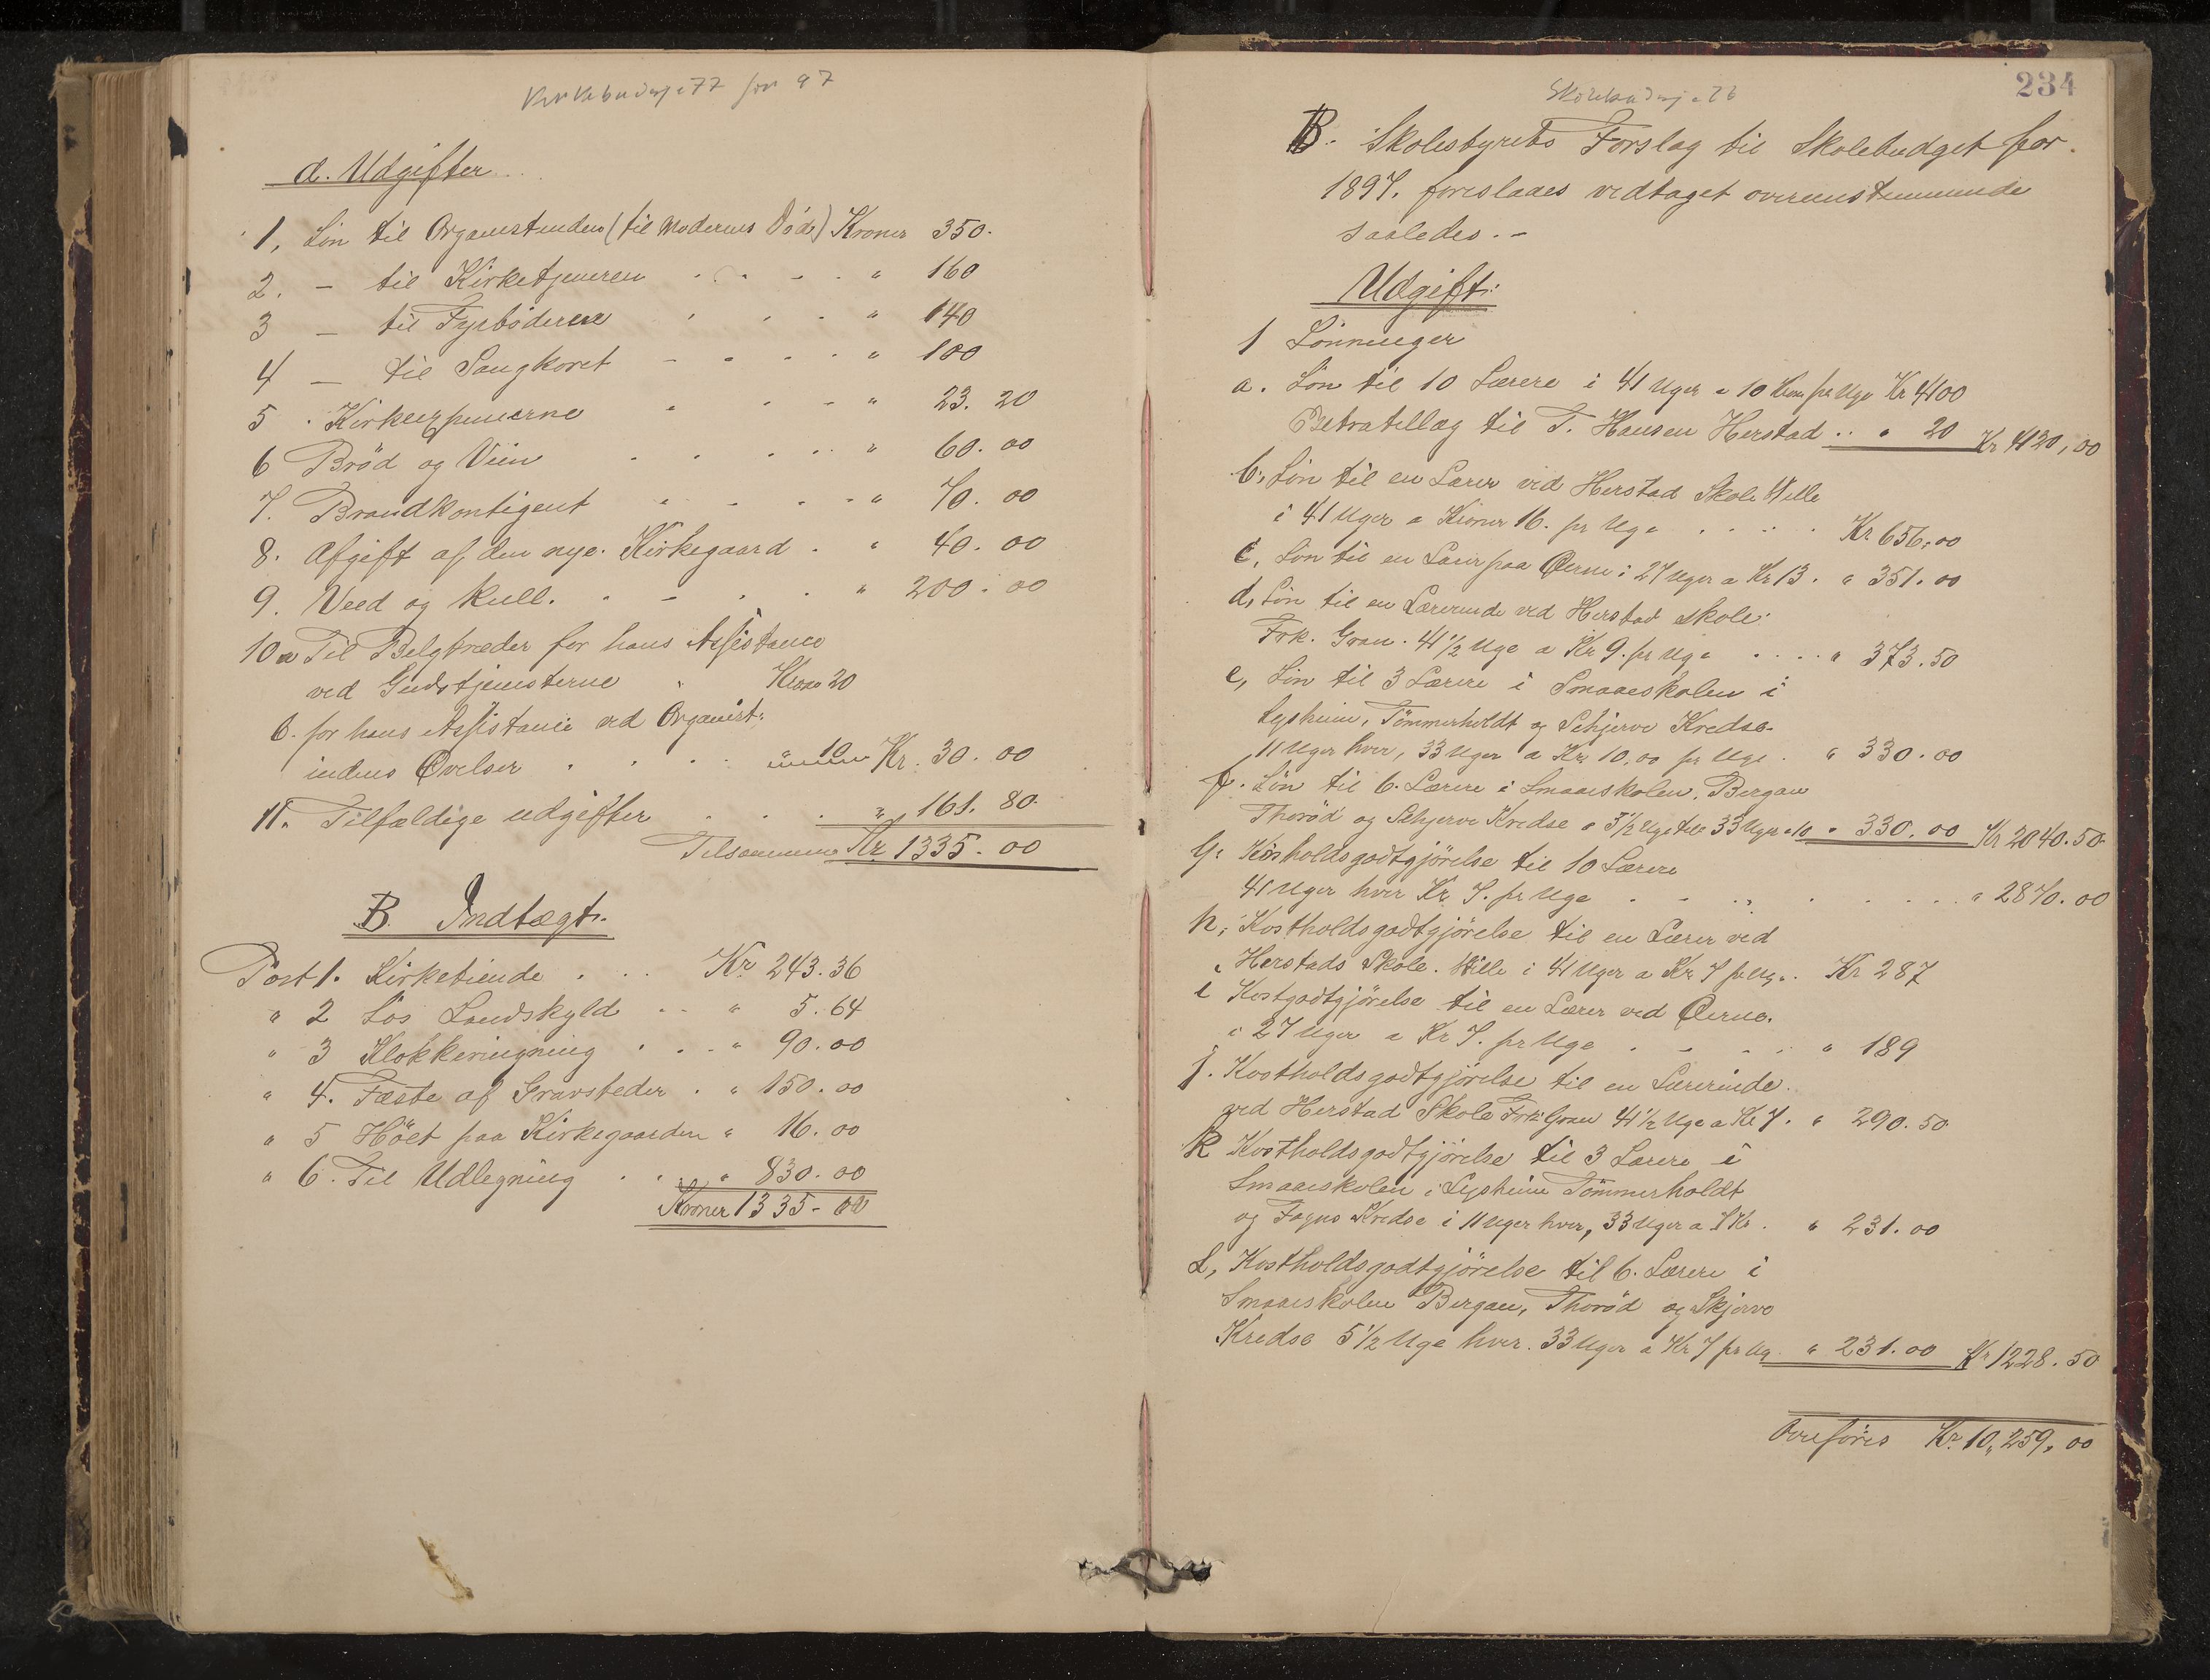 d. Udgifter
1, Løn til Organistinden (til Moderens Død) Kroner 350.
2. — til Kirketjeneren " 160
3 — til Fyrbøderen " 140
4 — til Sangkoret " 100
5 Kirkeeierne " 23. 20
6 Brød og Viin " 60. 00
7. Brandkontigent " 70. 00
8. Afgift af den nye Kirkegaard " 40. 00
9. Veed og kull. " 200. 00
10 a Til Belgtræder for hans Assistance
ved Gudstjenesterne " Kroner 20
b. for hans Assistance ved Organist-
indens Øvelser " 10 Kr. 30. 00
11. Tilfældige udgifter " 161. 80
Tilsammen Kr 1335. 00
B. Indtægt.
Post 1. Kirketiende Kr 243. 36
" 2 Løs Landskyld " 5. 64
" 3 Klokkeringning " 90. 00
" 4. Fæste af Gravsteder " 150. 00
" 5 Høet paa Kirkegaarden " 16. 00
" 6. Til Udlegning " 830. 00
Kroner 1335 - 00
234
B. Skolestyrets Forslag til Skolebudget for
1897. foreslaaes vedtaget overenstemmende
saaledes. -
Udgift:
1 Lønninger
a. Løn til 10 Lærere i 41 Uger a 10 Kron pr Uge Kr 4100
Extratillæg til T. Hansen Herstad " 20 Kr 4120, 00
b, Løn til en Lærer ved Herstad Skole Wille
i 41 Uger a Kroner 16. pr Uge Kr 656, 00
c, Løn til en Lærer paa Øerne i 27 Uger a Kr 13. " 351. 00
d, Løn til en Lærerinde ved Herstad Skole:
Frk. Gran. 41 1/2 Uge a Kr 9. pr Uge " 373. 50
e, Løn til 3 Lærere i Smaaeskolen i
Lysheim, Tømmerholdt og Schjerve Kredse
11 Uger hver, 33 Uger a Kr 10,00 pr Uge " 330. 00
f. Løn til 6. Lærere i Smaaeskolen, Bergan
Thorød og Schjerve Kredse a 5 1/2 Uge tils 33 Uger a 10 " 330. 00 Kr 2040. 50
g. Kostholdsgodtgjørelse til 10 Lærere
41 Uger hver Kr 7. pr Uge " 2870. 00
h, Kostholdsgodtgjørelse til en Lærer ved
Herstads Skole. Wille i 41 Uger a Kr 7 pr Uge. Kr 287
i Kostgodtgjørelse til en Lærer ved Øerne.
i 27 Uger a Kr 7. pr Uge " 189
j. Kostholdsgodtgjørelse til en Lærerinde
ved Herstad Skole Frk. Gran 41 1/2 Uge a Kr 7. " 290. 50
k Kostholdsgodtgjørelse til 3 Lærere i
Smaaeskolen i Lysheim Tømmerholdt
og Fagns Kredse i 11 Uger hver, 33 Uger a 7 Kr. " 231. 00
L, Kostholdsgodtgjørelse til 6. Lærere i
Smaaeskolen Bergan, Thorød og Skjerve
Kredse 5 1/2 Uge hver. 33 Uger a Kr 7 pr Ug. " 231. 00 Kr 1228. 50
Overføres Kr. 10,259, 00